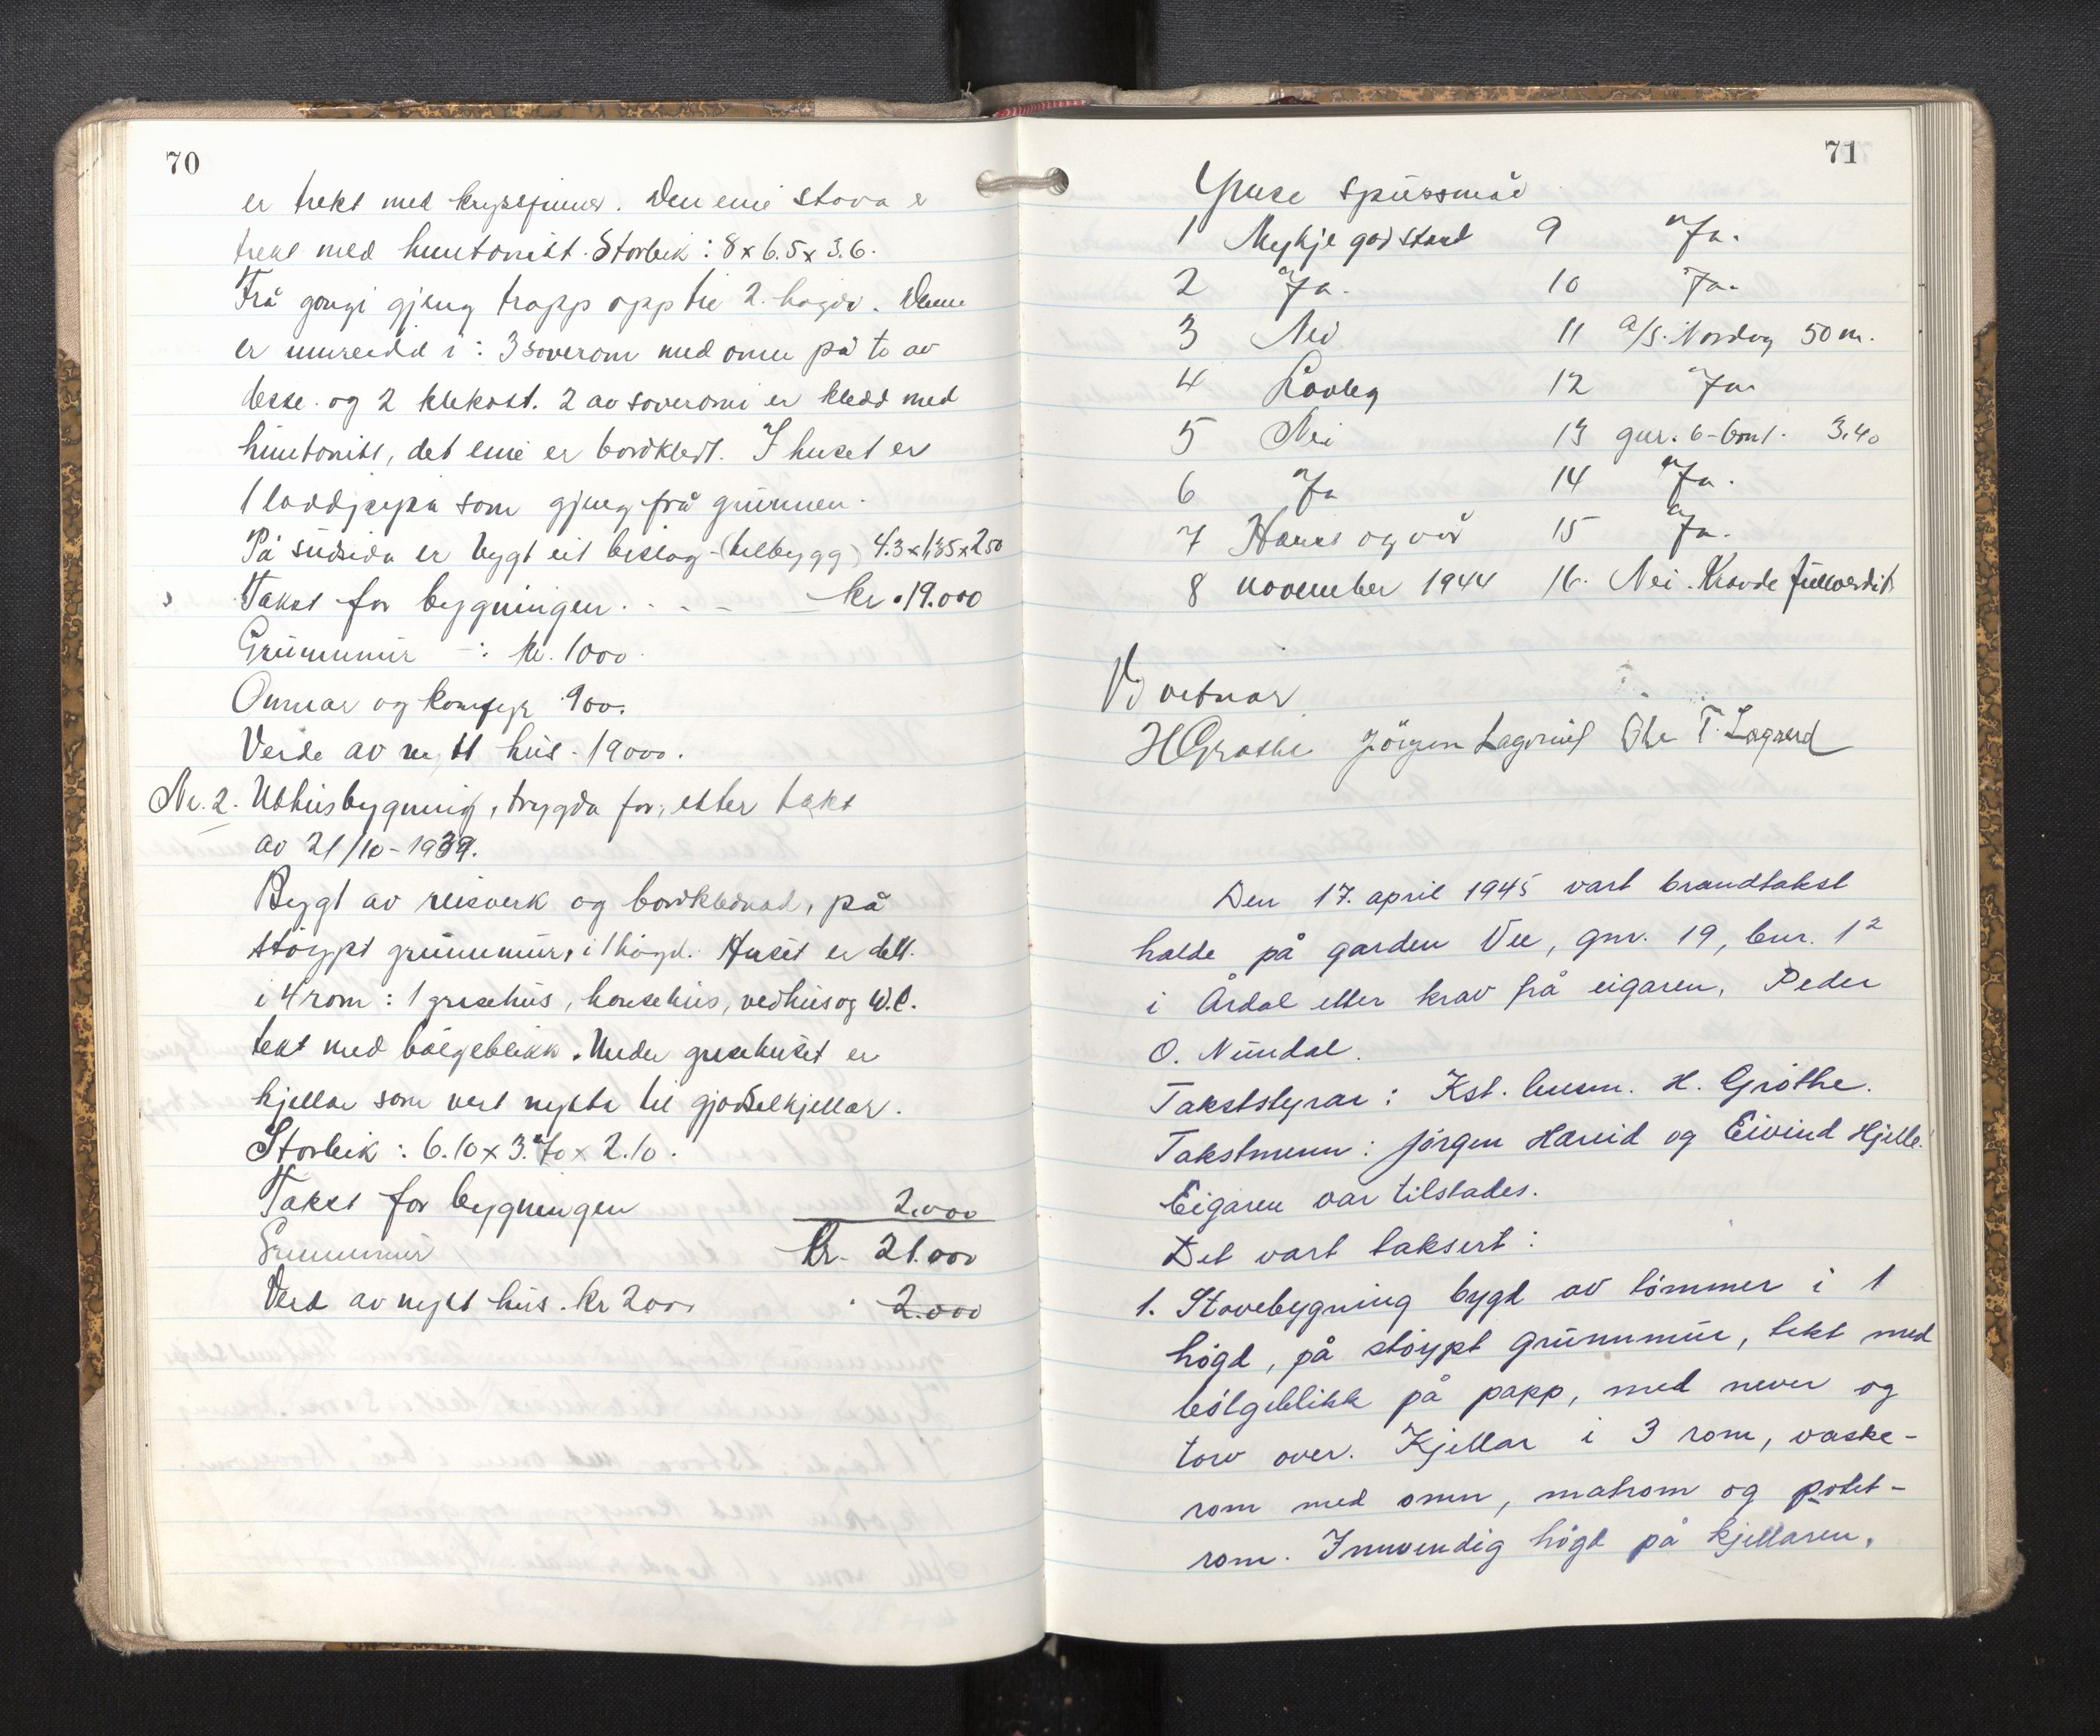 70
er trekt med kryssfiner. Den eine stova er
trekt med huntonitt. Storleik: 8 x 6.5 x 3.6.
Frå gangi gjeng trapp opp til 2. høgda. Denne
er innreidd i: 3 soverom med omn på to av
desse og 2 klekott. 2 av soveromi er kledd med
huntonitt, det eine er bordkledt. I huset er
1 loddpipa som gjeng frå grunnen.
På sudsida er bygt eit beslag-(tilbygg) 4.3 x 1,35 x 2.50
Takst for bygningen. - - - kr. 19.000
Grunnmur -: kr. 1000.
Omnar og komfyr 900.
Verde av nytt hus - 19000.
Nr. 2. Uthusbygning, trygda for, etter takst
av 21/10-1939.
Bygt av reisverk og bordklednad, på
støypt grunnmur, i 1 høgd. Huset er delt
i 4 rom: 1 grisehus, hønsehus, vedhus og W.C.
tekt med bølgeblikk. Under grisehuset er
kjellar som vert nytta til gjødselkjellar.
Storleik: 6.10 x 3.70 x 2.10.
Takst for bygningen 2.000
Grunnmur kr. 21.000
Verd av nytt hus. kr 2000 2.000
71
Ymse spursmål
1 Mykje god stand 9 Ja.
2 Ja. 10 Ja.
3 Nei 11 a/s. Nordag 50 m.
4 Lovleg 12 Ja
5 Nei 13 gnr. 6 - bnr. 3.40
6 Ja 14 Ja.
7 Haust og vår 15 Ja.
8 november 1944 16. Nei. Kravde fullverdit.
Vi vitnar
H Grøthe Jörgen Lægreid Ole T. Lægreid
Den 17. april 1945 vart brandtakst
halde på garden Vee, gnr. 19, bnr. 12
i Årdal etter krav frå eigaren, Peder
O. Nundal.
Takststyrar: Kst. lensm. H. Grøthe.
Takstmenn: Jörgen Hæreid og Eivind Hjelle.
Eigaren var tilstades.
Det vart taksert:
1. Stovebygning bygd av tømmer i 1
høgd, på støypt grunnmur, tekt med
bølgeblikk på papp, med never og
torv over. Kjellar i 3 rom, vaske-
rom med omn, matrom og potet-
rom. Innvendig høgd på kjellaren,